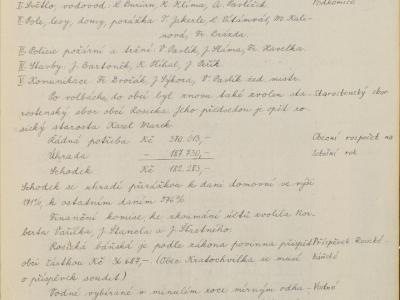 I. Světlo, vodovod: L. Burian, K. Klíma, A. Pavlíček.
Podkomice
II. Pole, lesy, domy, porážka V. Jekerle, L. Vítámvás, M. Kale-
nová, Fr. Brázda.
III. Policie požární a tržní: V. Pavlík, J. Sláma, Fr. Havelka.
IV. Stavby: J. Bartoněk, K. Mihal, J.
V. Komunikace Fr. Dvořák, J. Sýkora, V. Pavlík zed. mistr.
Po volbách do obcí byl znovu také zvolen sta-
Starostenský sbor
rostenský sbor obcí Rosicka. Jeho předsedou je opět ro-
sický starosta Karel Marek.
Řádná potřeba Kč 370.013,-
Obecní rozpočet na
Úhrada - 187.730,-
letošní rok
Schodek Kč 182.283,-
Schodek se uhradí přirážkou k dani domovní ve výši
191%, k ostatním daním 376%
Finanční komise ke zkoumání účtů zvolila Nor-
berta Vaříka, J. Stanola a J. Šustného.
Rosická báňská je podle zákona povinna přispět
Příspěvek Rosické
obci částkou Kč 36.687,- (Obec Kratochvilka se musí
báňské
o příspěvek soudit.)
Vodné vybírané v minulém roce mírným odha-
Vodné